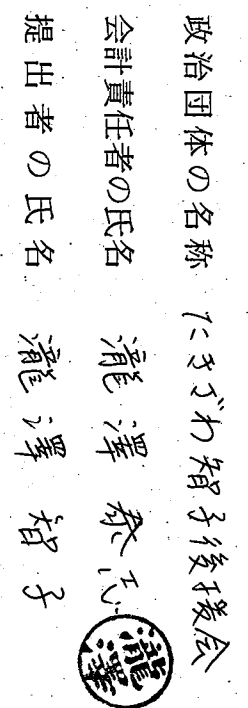 政治団体の名称 たきざわ智子後援会
会計責任者の氏名 瀧澤 泰志
提出者の氏名 瀧澤 智子
瀧澤